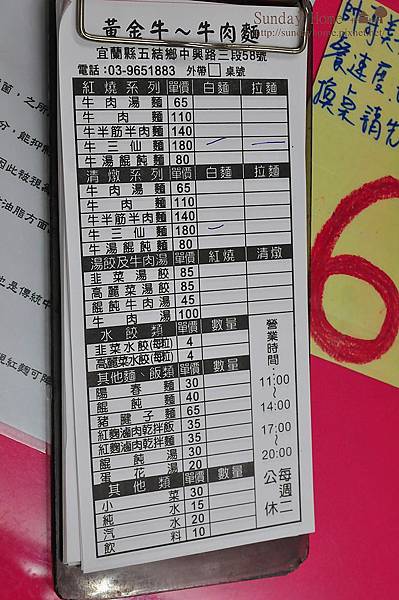 Sunday Home
http://sundayhome.pixnet.net
黃金牛～牛肉麵
宜蘭縣五結鄉中興路三段58號
電話：03-9651883 外帶□ 桌號
紅燒系列 單價 白麵 拉麵
牛肉湯麵 65
牛肉麵 110
牛半筋半肉麵 140
牛三仙麵 180
牛湯餛飩麵 80
清燉系列 單價 白麵 拉麵
牛肉湯麵 65
牛肉麵 110
牛半筋半肉麵 140
牛三仙麵 180
牛湯餛飩麵 80
湯餃及牛肉湯 單價 紅燒 清燉
韭菜湯餃 85
高麗菜湯餃 85
餛飩牛肉湯 45
牛肉湯 100
水餃類 單價 數量
韭菜水餃(每粒) 4
高麗菜水餃(每粒) 4
其他麵、飯類 單價 數量
陽春麵 30
餛飩麵 40
豬腱子麵 65
紅麴滷肉乾拌飯 35
紅麴滷肉乾拌麵 35
餛飩湯 30
蛋花湯 20
其他類 單價 數量
小菜 30
純水 15
汽水 20
飲料 10
營業時間：
11:00
～
14:00
17:00
～
20:00
每週二
公休
餐速度
換桌請先
6
菌，之所
分，能抑
因此被視
油脂方面
也是傳統中
現紅麴可降